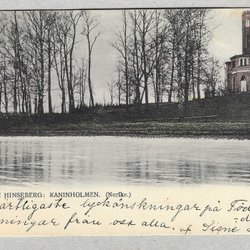 HINSEBERG: KANINHOLMEN. (Nerike.)
artligaste lyckönskningar på Föd
ningar från oss alla. af Signe